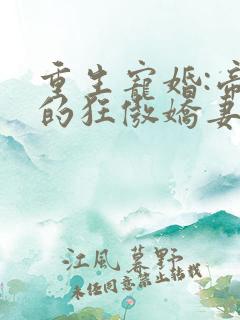 重生寵婚:帝
的狂傲嬌妻
江風暮野
未經同意禁止轉載